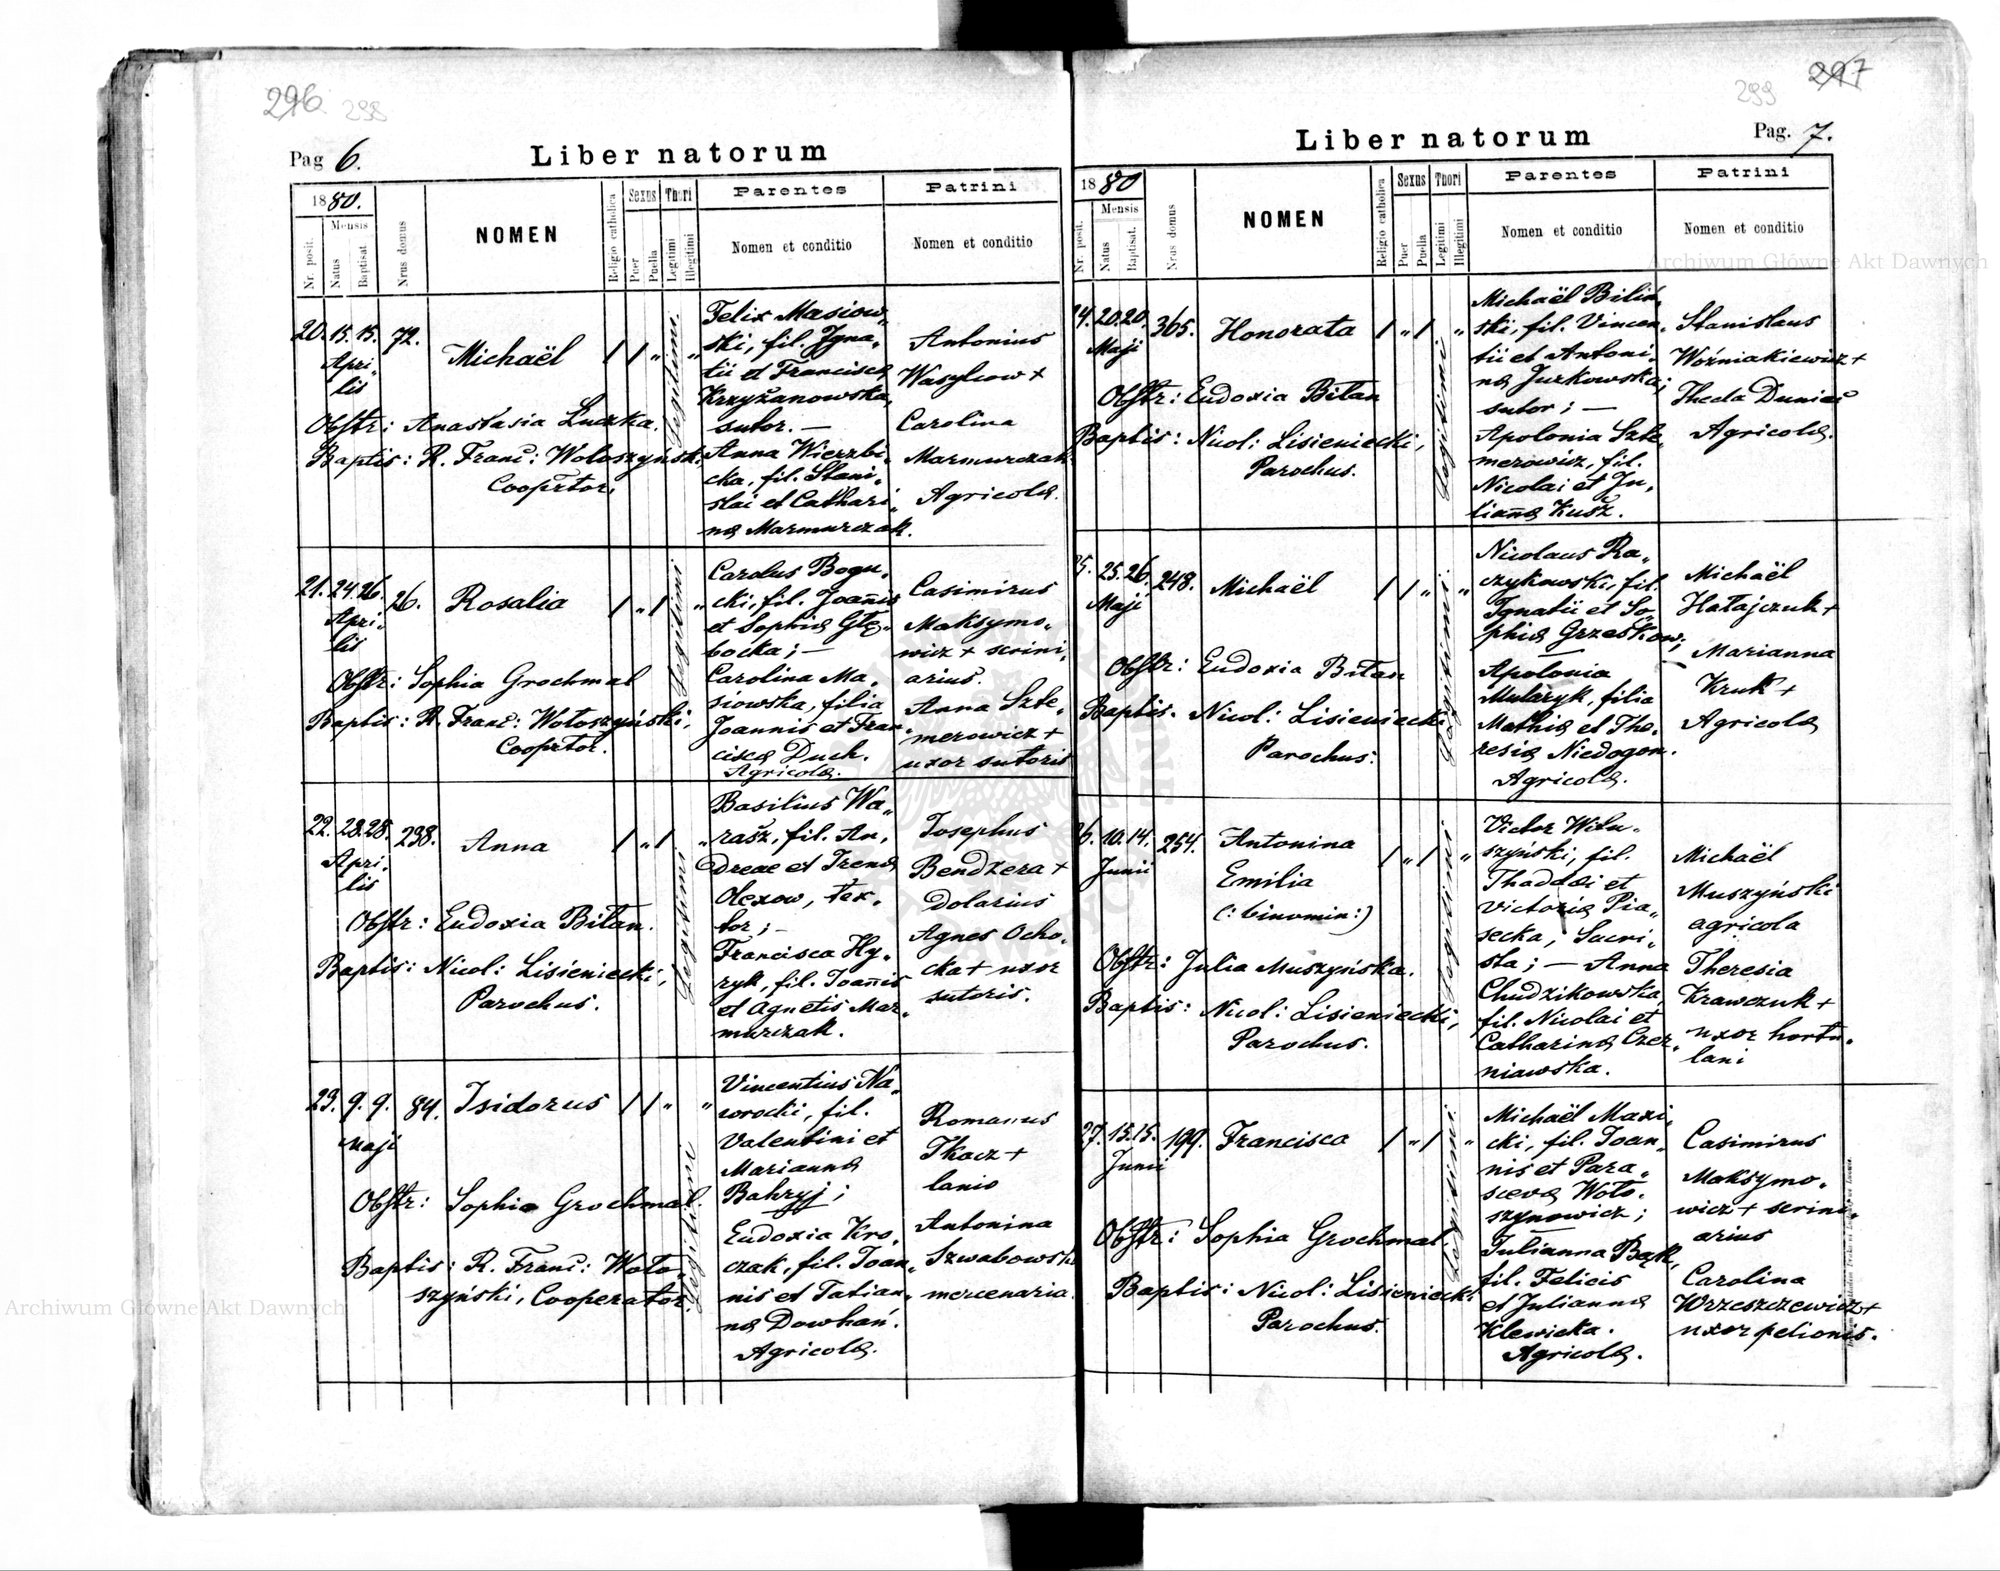 296. 298
Pag 6.
Liber natorum
1880.
Mensis
Nr. posit.
Natus
Baptisat.
Nrus domus
NOMEN
Religio catholica
Sexus
Puer
Puella
Thori
Legitimi
Illegitimi
Parentes
Nomen et conditio
Patrini
Nomen et conditio
20. 15. 15. 72.
Apri„
lis
Michaël
/ / „ „
Legitimi.
Obstr: Anastasia Luczka.
Baptis: R. Franc: Wołoszyński
Cooprtor.
Felix Masiow„
ski, fil. Igna„
tii et Francisca
Krzyżanowska,
sutor. —
Anna Wierzbi„
cka, fil. Stani„
slai et Cathari„
na Marmurczak.
Antonius
Wasylcow +
Carolina
Marmurczak
Agricola.
21. 24. 26. 26.
Apri„
lis
Rosalia
/ „ / „
Legitimi
Obstr: Sophia Grochmal
Baptis: R. Franc: Wołoszyński,
Cooprtor.
Carolus Bogu„
cki, fil. Joannis
et Sophia Głę„
bocka; —
Carolina Ma„
siowska, filia
Joannis et Fran„
cisca Duch.
Agricola.
Casimirus
Maksymo„
wicz + scrini„
arius.
Anna Szte„
merowicz +
uxor sutoris
22. 28. 28. 238.
Apri„
lis
Anna
/ „ / „
Legitimi
Obstr: Eudoxia Biłan.
Baptis: Nicol: Lisieniecki,
Parochus.
Basilius Wa„
rasz, fil. An„
dreae et Irena
Olexow, tex„
tor; —
Francisca Hy„
ryk, fil. Joannis
et Agnetis Mar„
murczak.
Josephus
Bendzera +
Dolarius
Agnes Ocho„
cka + uxor
sutoris.
23. 9. 9. 84.
Maji
Isidorus
/ / „ „
Legitimi
Obstr: Sophia Grochmal.
Baptis: R. Franc: Woło„
szyński, Cooperator.
Vincentius Na„
worocki, fil.
Valentini et
Marianna
Bahryj;
Eudoxia Kro„
czak, fil. Joan„
nis et Tatian„
na Dowhań.
Agricola.
Romanus
Tkacz +
lanio
Antonina
Szwabowska
mercenaria.
299 297
Liber natorum
Pag. 7.
1880
Mensis
Nr. posit.
Natus
Baptisat.
Nrus domus
NOMEN
Religio catholica
Sexus
Puer
Puella
Thori
Legitimi
Illegitimi
Parentes
Nomen et conditio
Patrini
Nomen et conditio
4. 20. 20. 365.
Maji
Honorata
/ „ / „
Legitimi
Obstr: Eudoxia Biłan
Baptis: Nicol: Lisieniecki,
Parochus.
Michaël Biliń„
ski, fil. Vincen„
tii et Antoni„
na Jurkowska;
sutor; —
Apolonia Szte„
merowicz, fil.
Nicolai et Ju„
lianna Kusz.
Stanislaus
Woźniakiewicz +
Thecla Duniec
Agricola.
5. 25. 26. 248.
Maji
Michaël
/ / „ „
Legitimi
Obstr: Eudoxia Biłan
Baptis. Nicol: Lisieniecki
Parochus.
Nicolaus Ra„
czykowski, fil.
Ignatii et So„
phia Grzeskow;
Apolonia
Mularyk, filia
Mathia et The„
resia Niedogon.
Agricola.
Michaël
Hałajczuk +
Marianna
Kruk +
Agricola
6. 10. 14. 254.
Junii
Antonina
Emilia
(: binomin:)
/ „ / „
Legitimi
Obstr: Julia Muszyńska.
Baptis: Nicol: Lisieniecki,
Parochus.
Victor Witu„
szyński, fil.
Thaddäi et
Victoria Pia„
secka, Sacri„
sta; — Anna
Chudzikowska,
fil. Nicolai et
Catharina Czer„
niawska.
Michaël
Muszyński
agricola
Theresia
Krawczuk +
uxor hortu„
lani
27. 15. 15. 199.
Junii
Francisca
/ „ / „
Legitimi
Obstr: Sophia Grochmal
Baptis: Nicol: Lisieniecki
Parochus.
Michaël Maxi„
cki, fil. Joan„
nis et Para„
sceva Woło„
szynowicz;
Julianna Bąk,
fil. Felicis
et Julianna
Klewicka.
Agricola.
Casimirus
Maksymo„
wicz + scrini„
arius
Carolina
Wrzeszczewicz +
uxor pelionis.
Archiwum Główne Akt Dawnych
Archiwum Główne Akt Dawnych